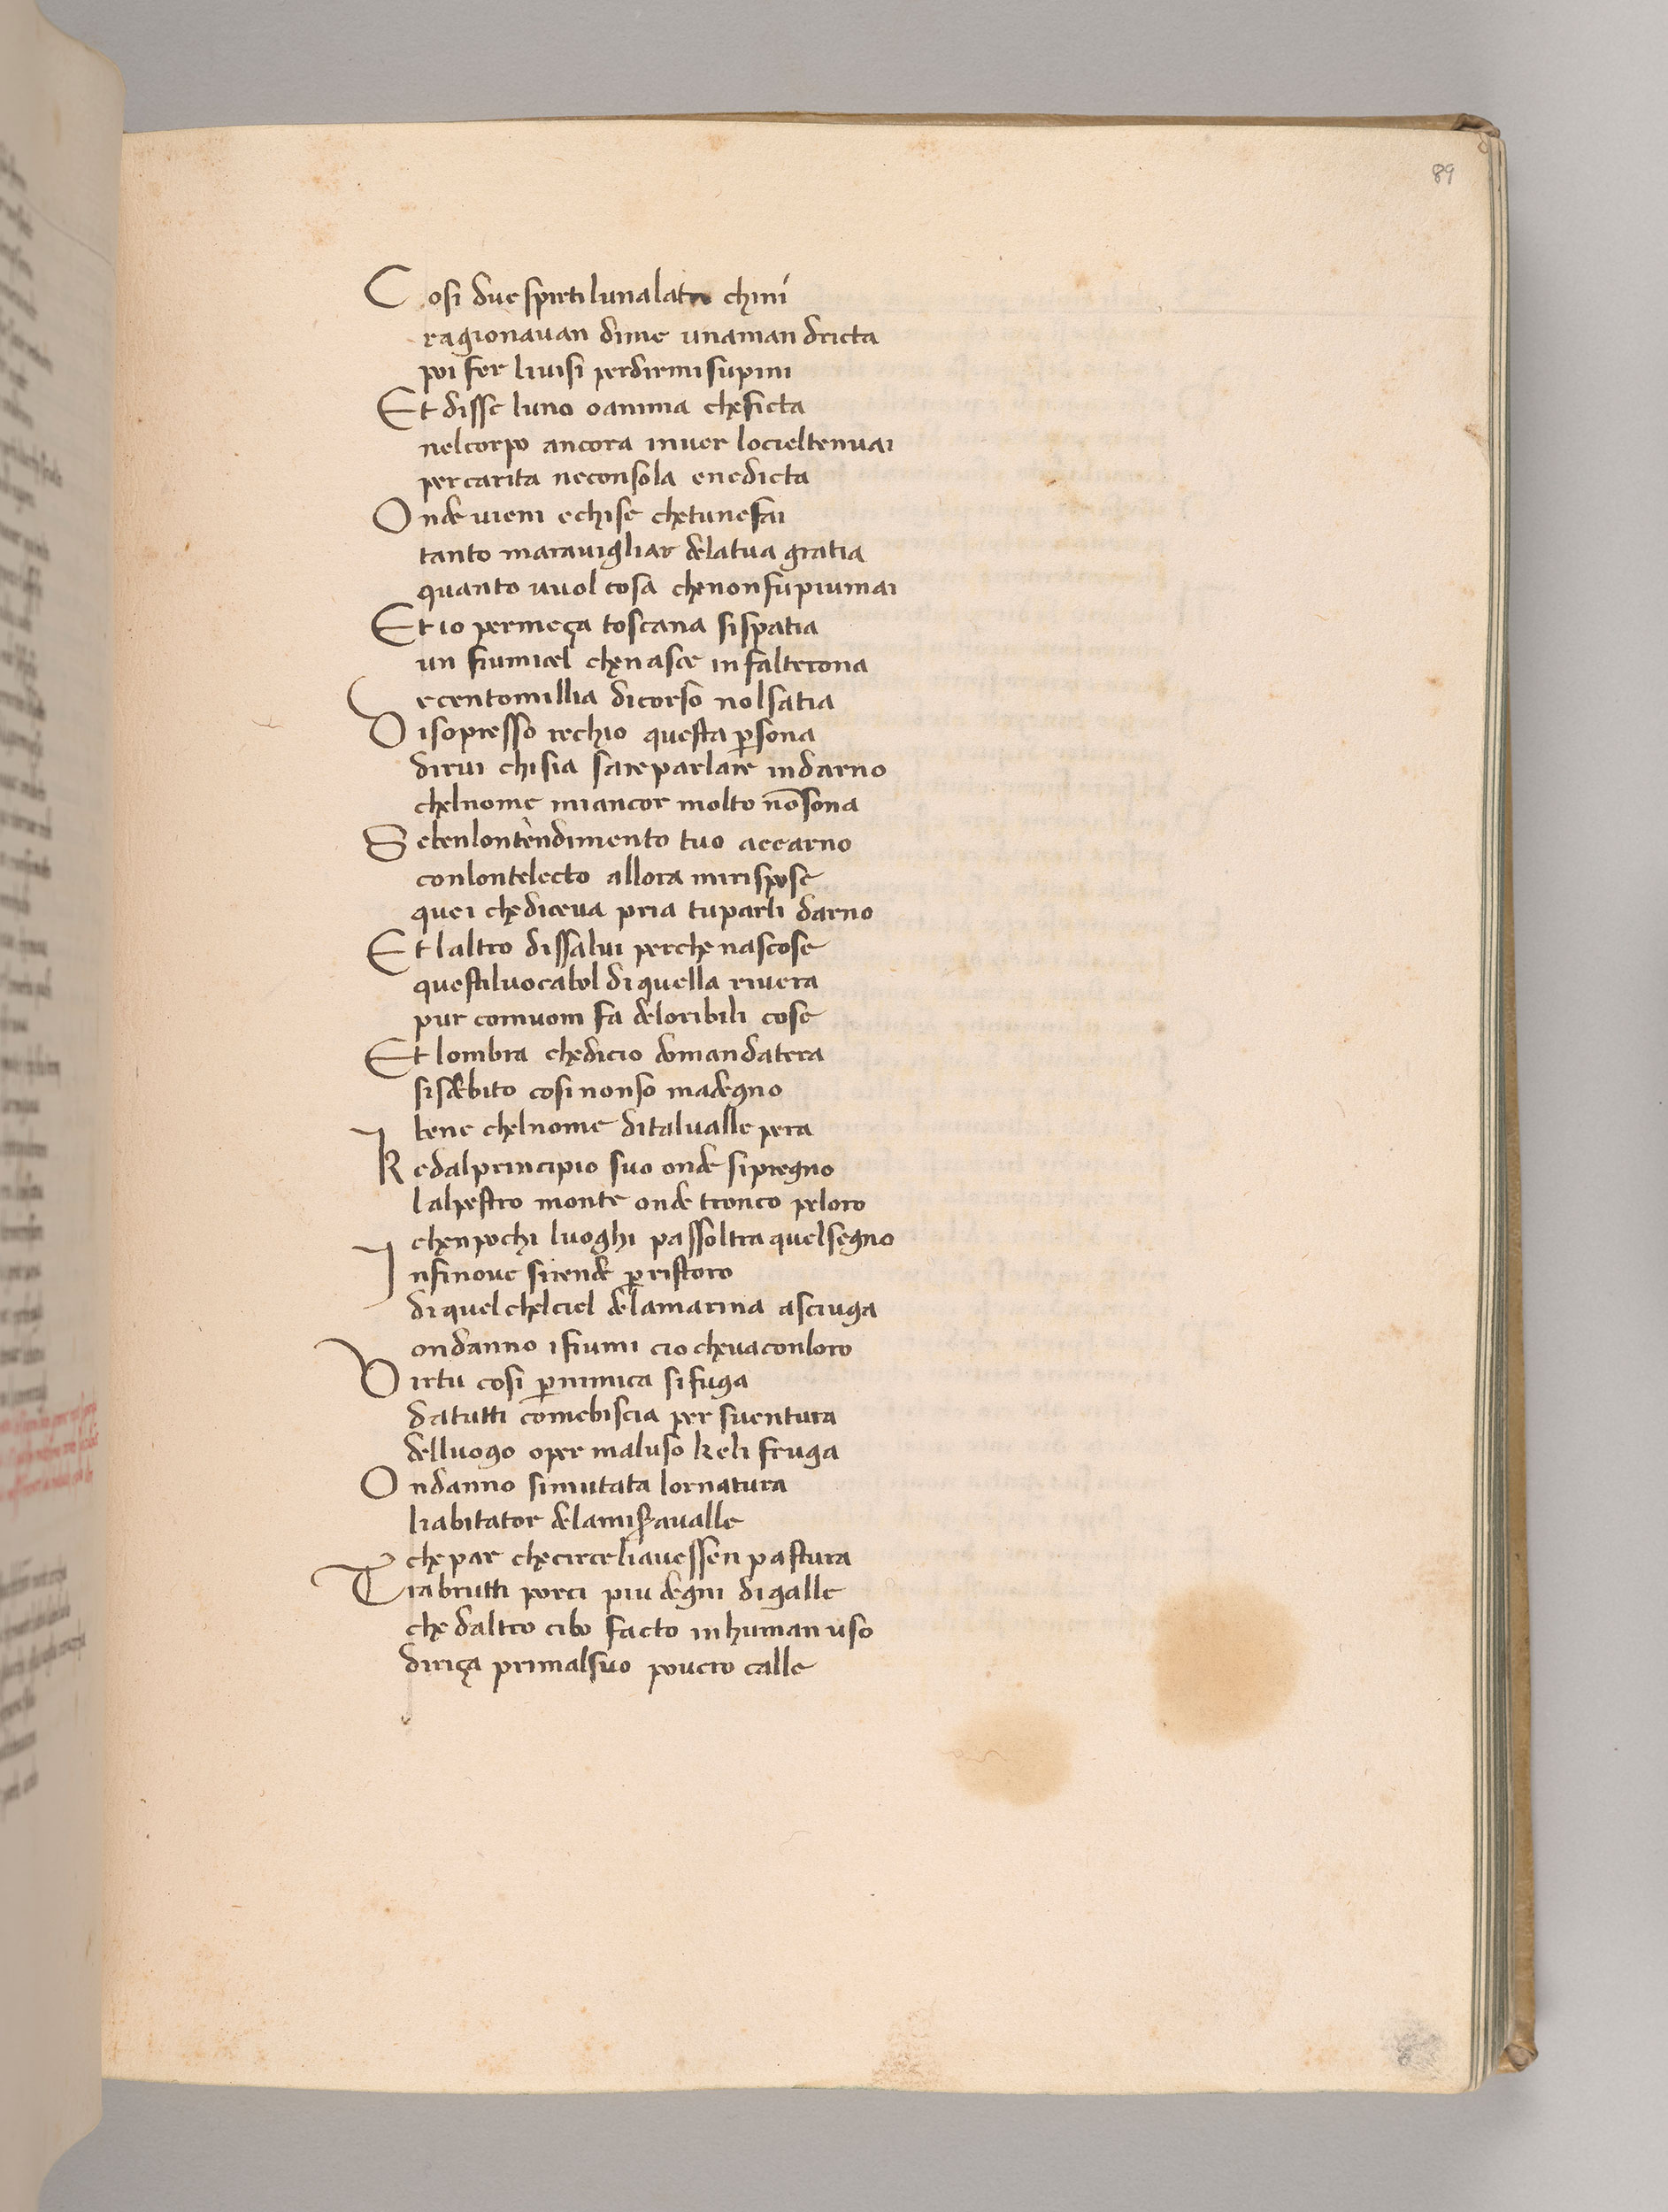 89
Cosi due spirti luna laltro chini
ragionavan dime unaman dricta
poi fer livisi perdirmi supini
Et disse luno oanima cheficta
nelcorpo ancora inver locieltenvai
percarita neconsola enedicta
Onde vieni echise chetunefai
tanto maravigliar delatua gratia
quanto vuol cosa chenonfupiumai
Et io permeça toscana sispatia
un fiumicel chenasce infalterona
ecentomillia dicorso nolsatia
Disopresso rechio questa psona
dirvi chisia sareparlare indarno
chelnome miancor molto nōsona
Sebenlontendimento tuo accarno
conlontelecto allora mirispose
quei chediceva pria tuparli darno
Et laltro dissalui perche nascose
questiluocabol diquella rivera
pur comuom fa deloribili cose
Et lombra chedicio domandatera
sisdebito cosi nonso madegno
bene chelnome dital valle pera
Kedalprincipio suo onde sipregno
lalpestro monte onde tronco peloro
chenpochi luoghi passoltra quelsegno
Infinove sirende pristoro
diquel chelciel delamarina asciuga
ondanno ifiumi cio chevaconloro
Virtu cosi pnimica sifuga
datutti comebiscia per sventura
delluogo oper maluso keli fruga
Ondanno simutata lornatura
liabitator delamisavalle
chepar checirceliavessen pastura
Trabrutti porci piu degni digalle
che daltro cibo facto inhuman uso
diriça primalsuo povero calle